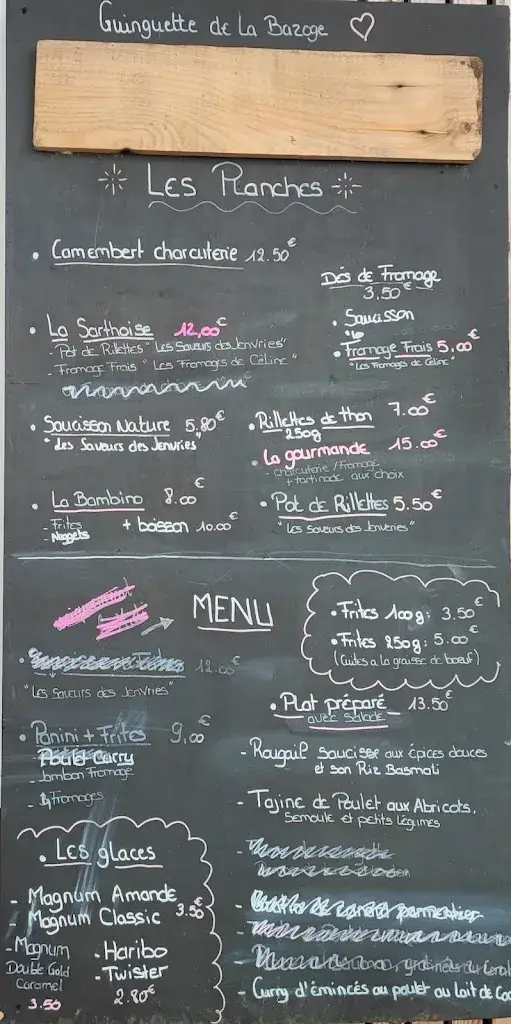 Guinguette de La Bazoge ♡
Les Planches
• Camembert charcuterie 12.50€
Dés de Fromage
3,50€
• Saucisson
• La Sarthoise 12,00€
- Pot de Rillettes "Les Saveurs des Jenvries"
- Fromage Frais "Les Fromages de Céline"
• Fromage Frais 5,00€
"Les Fromages de Céline"
• Saucisson Nature 5.80€
"Les Saveurs des Jenvries"
• Rillettes de thon 7.00€
250g
• La gourmande 15.00€
- charcuterie / Fromage
+ tartinade aux choix
• La Bambino 8.00€
- Frites
- Nuggets
+ boisson 10.00€
• Pot de Rillettes 5.50€
"Les Saveurs des Jenveries"
MENU
• Frites 100g: 3.50€
• Frites 250g: 5.00€
(Cuites a la graisse de boeuf)
12.00€
"Les Saveurs des Jenvries"
• Panini + Frites 9,00€
Poulet Curry
- Jambon Fromage
- 4 Fromages
• Plat préparé 13.50€
avec salade
- Rougail saucisse aux épices douces
et son Riz Basmati
- Tajine de Poulet aux Abricots,
Semoule et petits légumes
- Curry d'émincés au poulet au lait de Coc
• Les glaces
- Magnum Amande
Magnum Classic 3.50€
- Magnum
Double Gold
Caramel
3.50
- Haribo
- Twister
2.80€